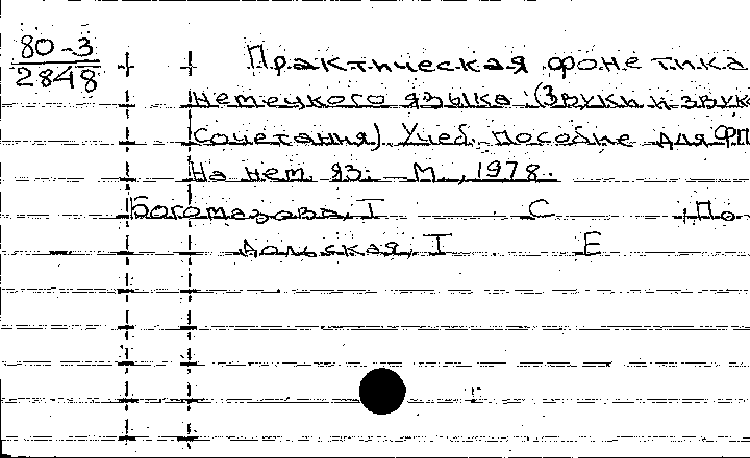 80-3
2848
Практическая фонетика
немецкого языка (Звуки и звук
сочетания) Учеб. пособие для ФП
На нем. яз. – М., 1978.
Богомазова, Т С , По
дольская, Т Е